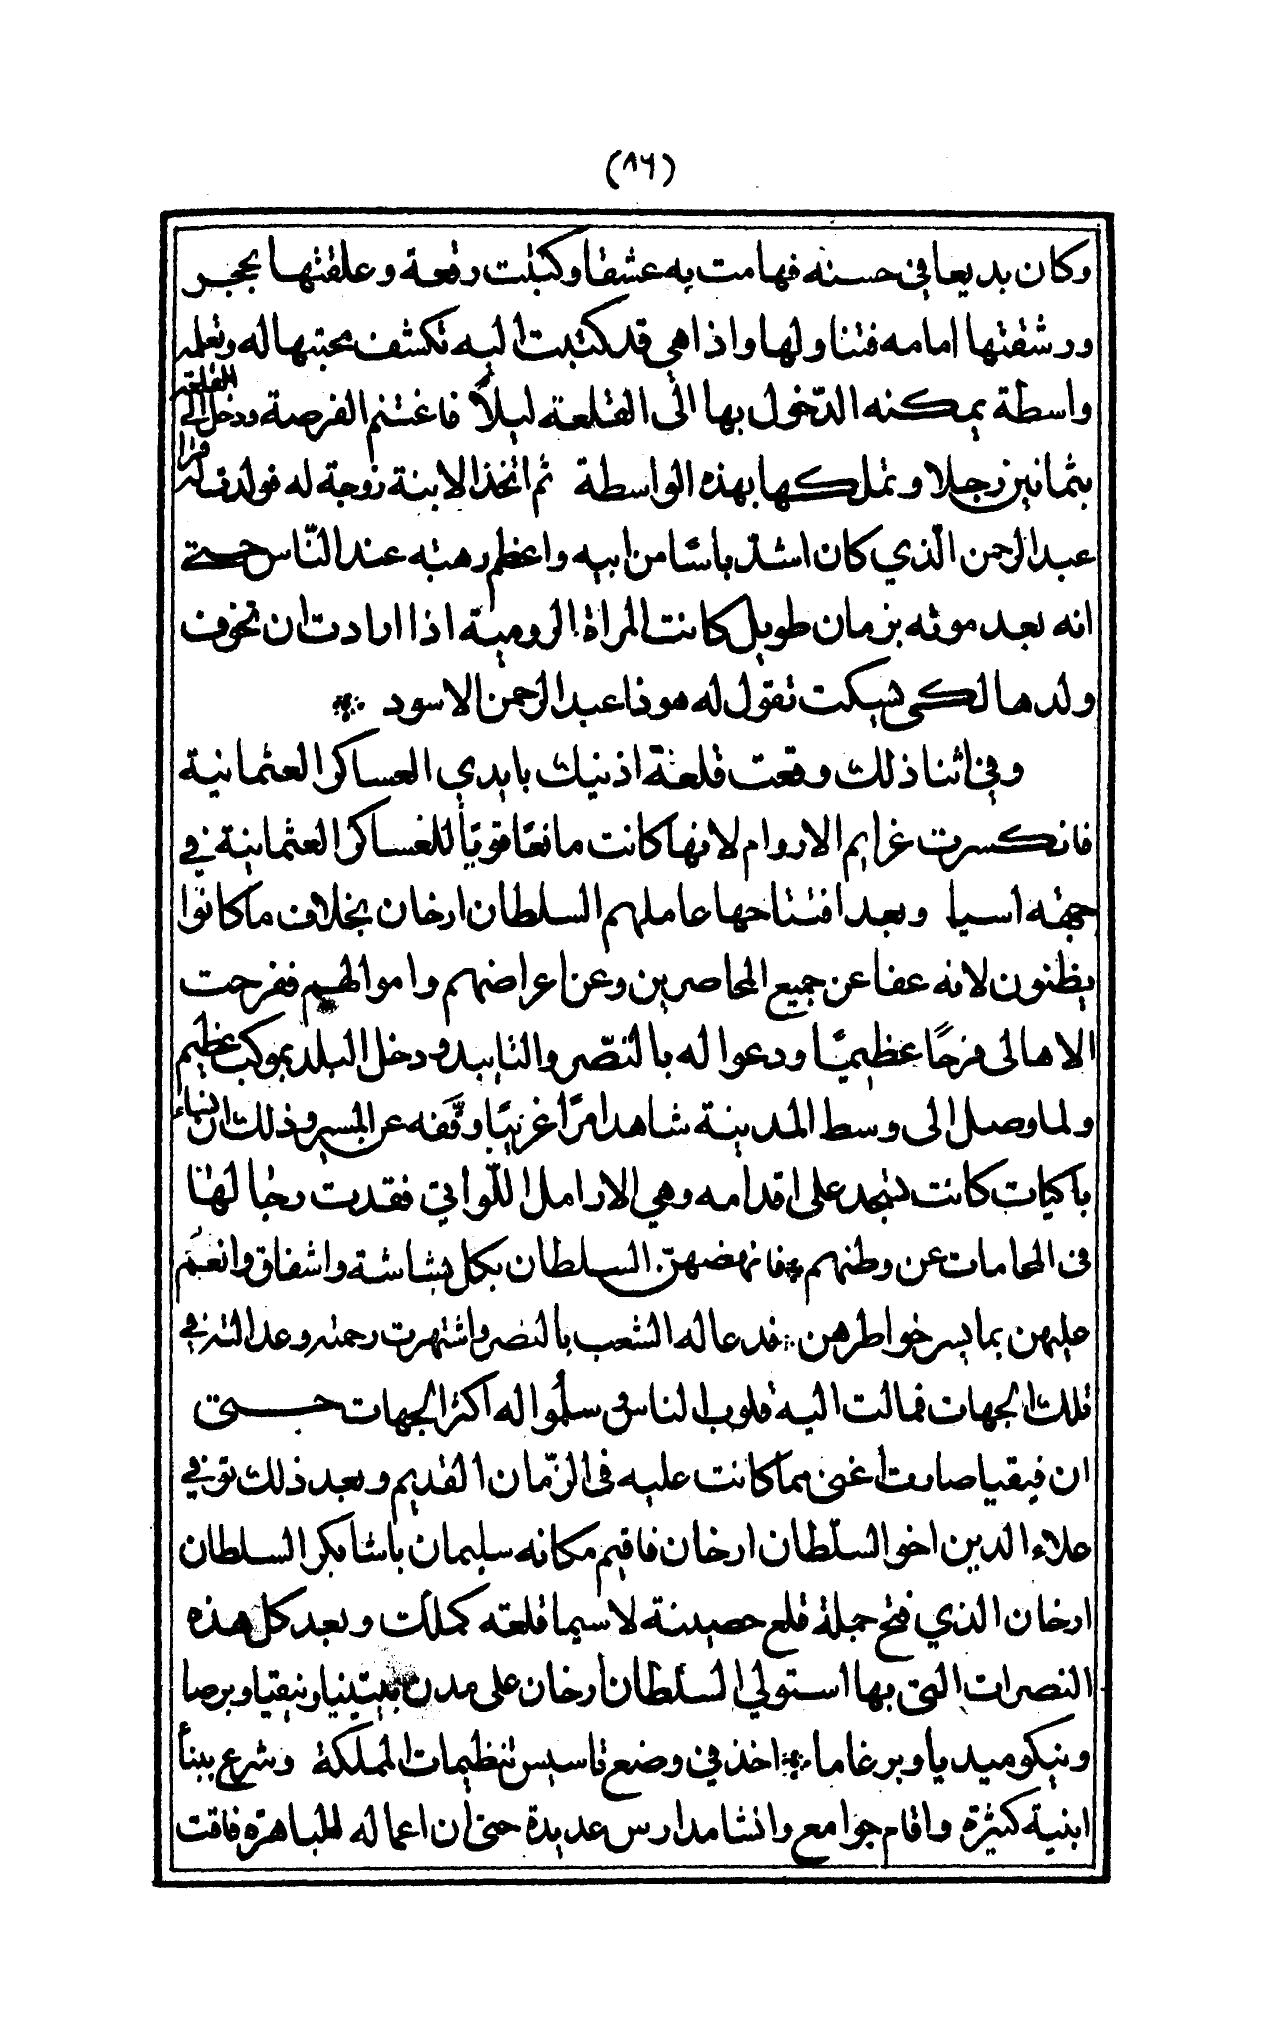 (٨٦)
وكان بديعا في حسنه فهامت به عشقا وكتبت رقعة وعلقتها بحجر
ورشقتها امامه فتناولها واذا هي قد كتبت اليه تكشف محبتها له وتعلمه
واسطة يمكنه الدّخول بها الى القلعة ليلاً فاغتنم الفرصة ودخل الى القلعة
بثمانين رجلا وتملكها بهذه الواسطة ثم اتخذ الابنة زوجة له فولد له
عبد الرحمن الّذي كان اشدّ باسًا من ابيه واعظم رهبته عند النّاس حتى
انه بعد موته بزمان طويل كانت المراة الرومية اذا ارادت ان تخوف
ولدها لكي يسكت تقول له هوذا عبد الرحمن الاسود
وفي اثنا ذلك وقعت قلعة اذنيك بايدي العساكر العثمانية
فانكسرت عزايم الاروام لانها كانت مانعًا قويًا للعساكر العثمانية في
جهة اسيا وبعد افتتاحها عاملهم السلطان ارخان بخلاف ما كانوا
يظنون لانه عفا عن جميع المحاصرين وعن اعراضهم واموالهم ففرحت
الاهالى فرحًا عظيمًا ودعوا له بالنصّر والتاييد ودخل البلد بموكب عظيم
ولما وصل الى وسط المدينة شاهد امرًا غريبًا وقّفه عن المسير وذلك ان نساء
باكيات كانت تسجد على اقدامه وهي الارامل اللّواتي فقدت رجالهنا
في المحامات عن وطنهم فانهضهنّ السلطان بكل بشاشة واشفاق وانعم
عليهن بما يسر خواطرهن فدعا له الشعب بالنصر واشتهرت رحمته وعدالته في
تلك الجهات فمالت اليه قلوب الناس وسلّموا له اكثر الجهات حتى
ان نيقيا صارت اغنى مما كانت عليه في الزّمان القديم وبعد ذلك توفي
علاء الدين اخو السلّطان ارخان فاقيم مكانه سليمان باشا بكر السلطان
ارخان الذي فتح جملة قلع حصينة لا سيما قلعة كملك وبعد كل هذه
النصرات التي بها استولي السلطان ارخان على مدن بيتينيا ونيقيا وبرصا
ونيكوميديا وبرغاما اخذ في وضع تاسيس تنظيمات المملكة وشرع ببنأ
ابنية كثيرة واقام جوامع وانشا مدارس عديدة حتى ان اعماله الباهرة فاقت